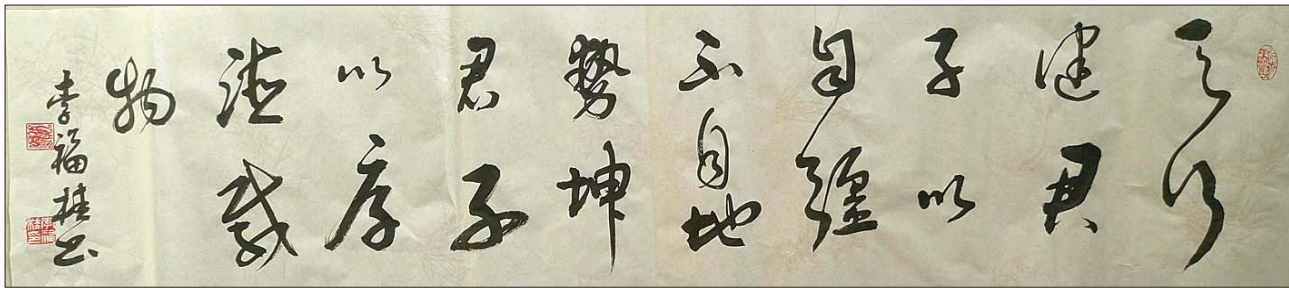 天行
健君
子以
自彊
不息地
勢坤
君子
以厚
德載
物
李福桂书